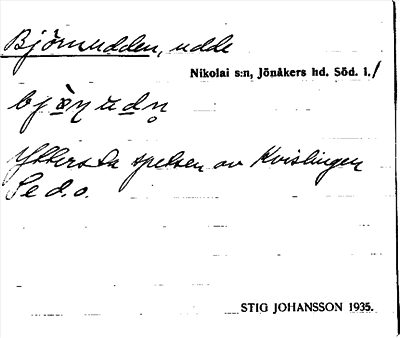 Björnudden, udde
Nikolai s:n, Jönåkers hd. Söd. 1./
Yttersta spetsen av Kvislingen
Se d.o.
STIG JOHANSSON 1935.